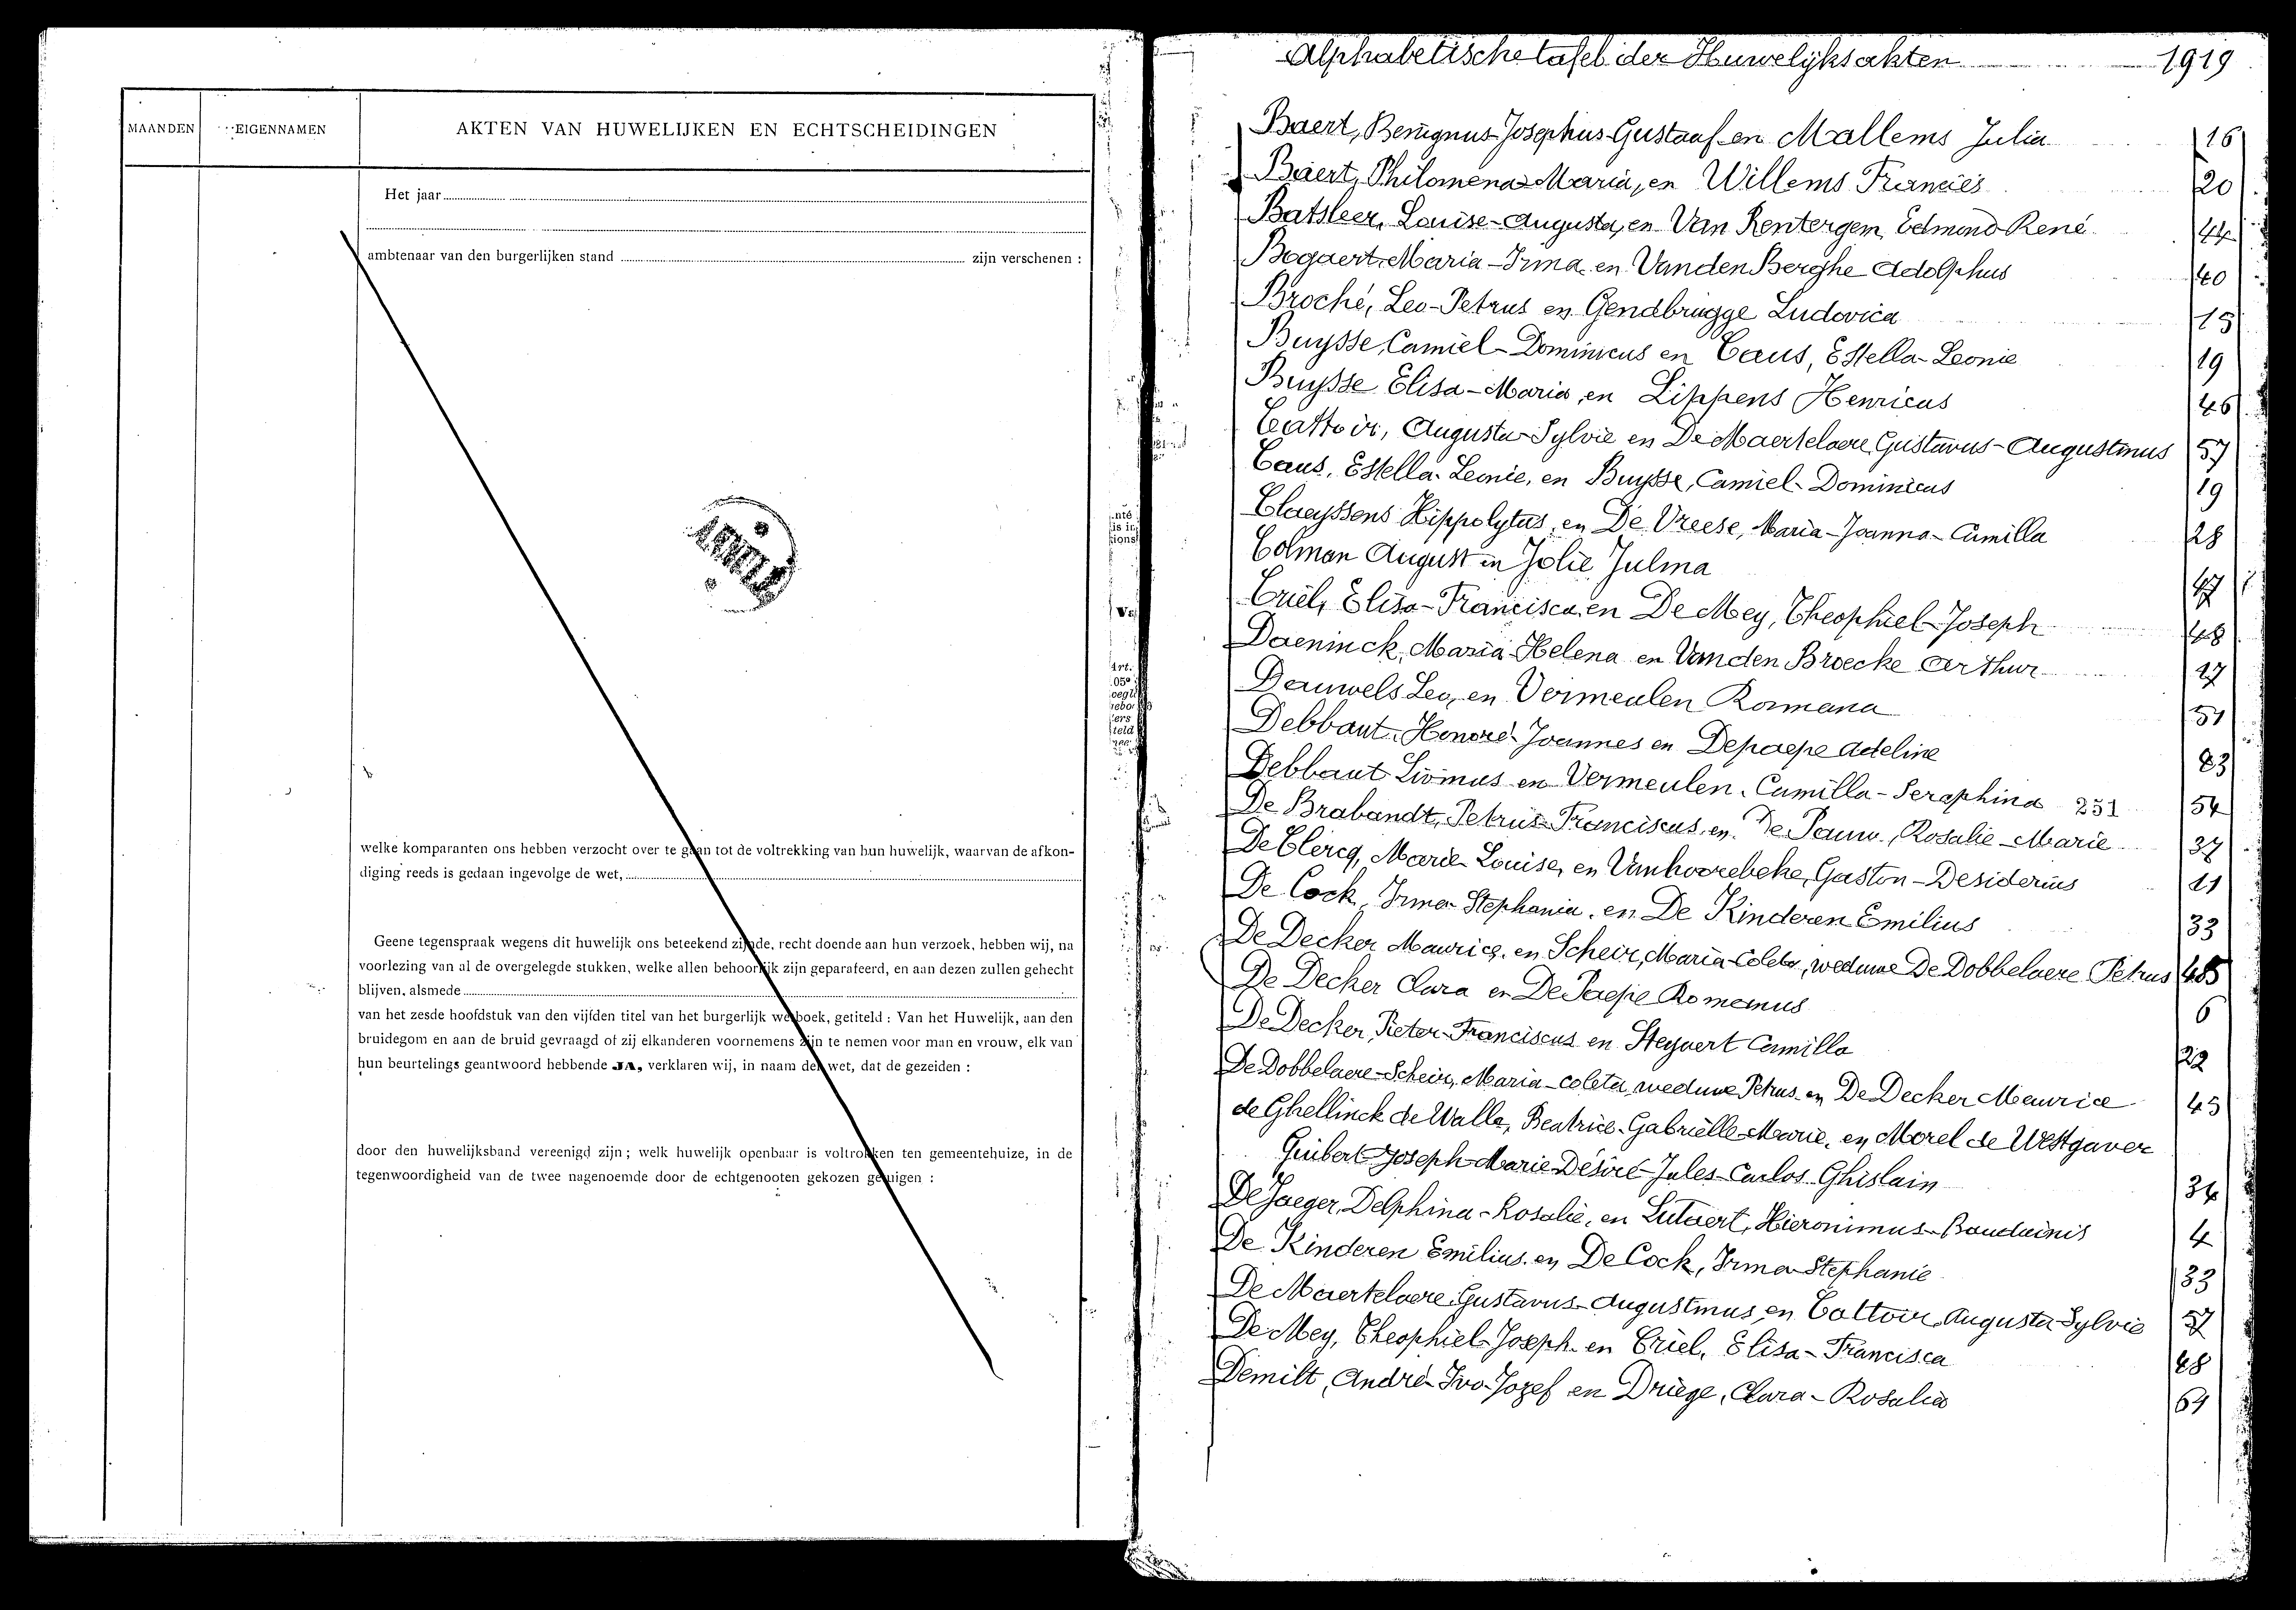 MAANDEN
EIGENNAMEN
AKTEN VAN HUWELIJKEN EN ECHTSCHEIDINGEN
Het jaar
ambtenaar van den burgerlijken stand zijn verschenen :
welke komparanten ons hebben verzocht over te gaan tot de voltrekking van hun huwelijk, waarvan de afkon-
diging reeds is gedaan ingevolge de wet,
Geene tegenspraak wegens dit huwelijk ons beteekend zijnde, recht doende aan hun verzoek, hebben wij, na
voorlezing van al de overgelegde stukken, welke allen behoorlijk zijn geparafeerd, en aan dezen zullen gehecht
blijven, alsmede
van het zesde hoofdstuk van den vijfden titel van het burgerlijk wetboek, getiteld : Van het Huwelijk, aan den
bruidegom en aan de bruid gevraagd of zij elkanderen voornemens zijn te nemen voor man en vrouw, elk van
hun beurtelings geantwoord hebbende JA, verklaren wij, in naam der wet, dat de gezeiden :
door den huwelijksband vereenigd zijn ; welk huwelijk openbaar is voltrokken ten gemeentehuize, in de
tegenwoordigheid van de twee nagenoemde door de echtgenooten gekozen getuigen :
Alphabetische tafel der Huwelijksakten 1919
Baert, Benignus-Josephus-Gustaaf en Mallems Julia 16
Baert, Philomena-Maria, en Willems Francies 20
Batsleer, Louise-Augusta, en Van Rentergem, Edmond-René 44
Bogaert, Maria-Irma en Vanden Berghe Adolphus 40
Broché, Leo-Petrus en Gendbrugge Ludovica 15
Buysse, Camiel-Dominicus en Caus, Estella-Leonie 19
Buysse Elisa-Maria, en Lippens Henricus 46
Cattoir, Augusta-Sylvie en De Maertelaere, Gustavus-Augustinus 57
Caus, Estella-Leonie, en Buysse, Camiel-Dominicus 19
Claeyssens Hippolytus, en De Vreese, Maria-Joanna-Camilla 28
Colman August en Jolie Julma 47
Criel, Elisa-Francisca, en De Mey, Theophiel-Joseph 48
Daeninck, Maria-Helena en Vanden Broecke Arthur 17
Dauwels Leo, en Vermeulen Romana 51
Debbaut, Honoré-Joannes en Depaepe Adeline
Debbaut Livinus en Vermeulen, Camilla-Seraphina 251 54
De Brabandt, Petrus-Franciscus, en De Pauw, Rosalie-Marie 37
De Clercq, Marie-Louise, en Vanhoorebeke, Gaston-Desiderius 11
De Cock, Irma-Stephania, en De Kinderen Emilius 33
De Decker Maurice, en Scheir, Maria-Coleta, weduwe De Dobbelaere Petrus 45
De Decker Clara en De Paepe Romanus 6
De Decker, Pieter-Franciscus en Steyaert Camilla 22
De Dobbelaere-Scheir, Maria-Coleta, weduwe Petrus en De Decker Maurice 45
de Ghellinck de Walle, Beatrice-Gabrielle-Marie, en Morel de Westgaver
Guibert-Joseph-Marie-Désiré-Jules-Carlos-Ghislain 34
De Jaeger, Delphina-Rosalie, en Lutaert, Hieronimus-Bauduinis 4
De Kinderen Emilius en De Cock, Irma-Stephanie 33
De Maertelaere, Gustavus-Augustinus, en Cattoir, Augusta-Sylvie 57
De Mey, Theophiel-Joseph en Criel, Elisa-Francisca 48
Demilt, André-Ivo-Jozef en Driege, Clara-Rosalia 61